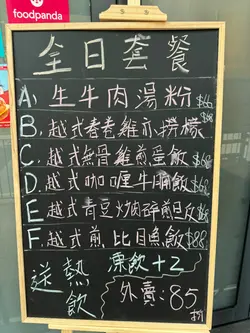 foodpanda
全日套餐
A. 生牛肉湯粉 $66
B. 越式春卷雞亦撈檬 $68
C. 越式無骨雞煎蛋飯 $68
D. 越式咖喱牛腩飯 $68
E. 越式青豆火焗碎煎旦反
F. 越式煎比目魚飯 $88
送熱飲
凍飲+2
外賣:85折